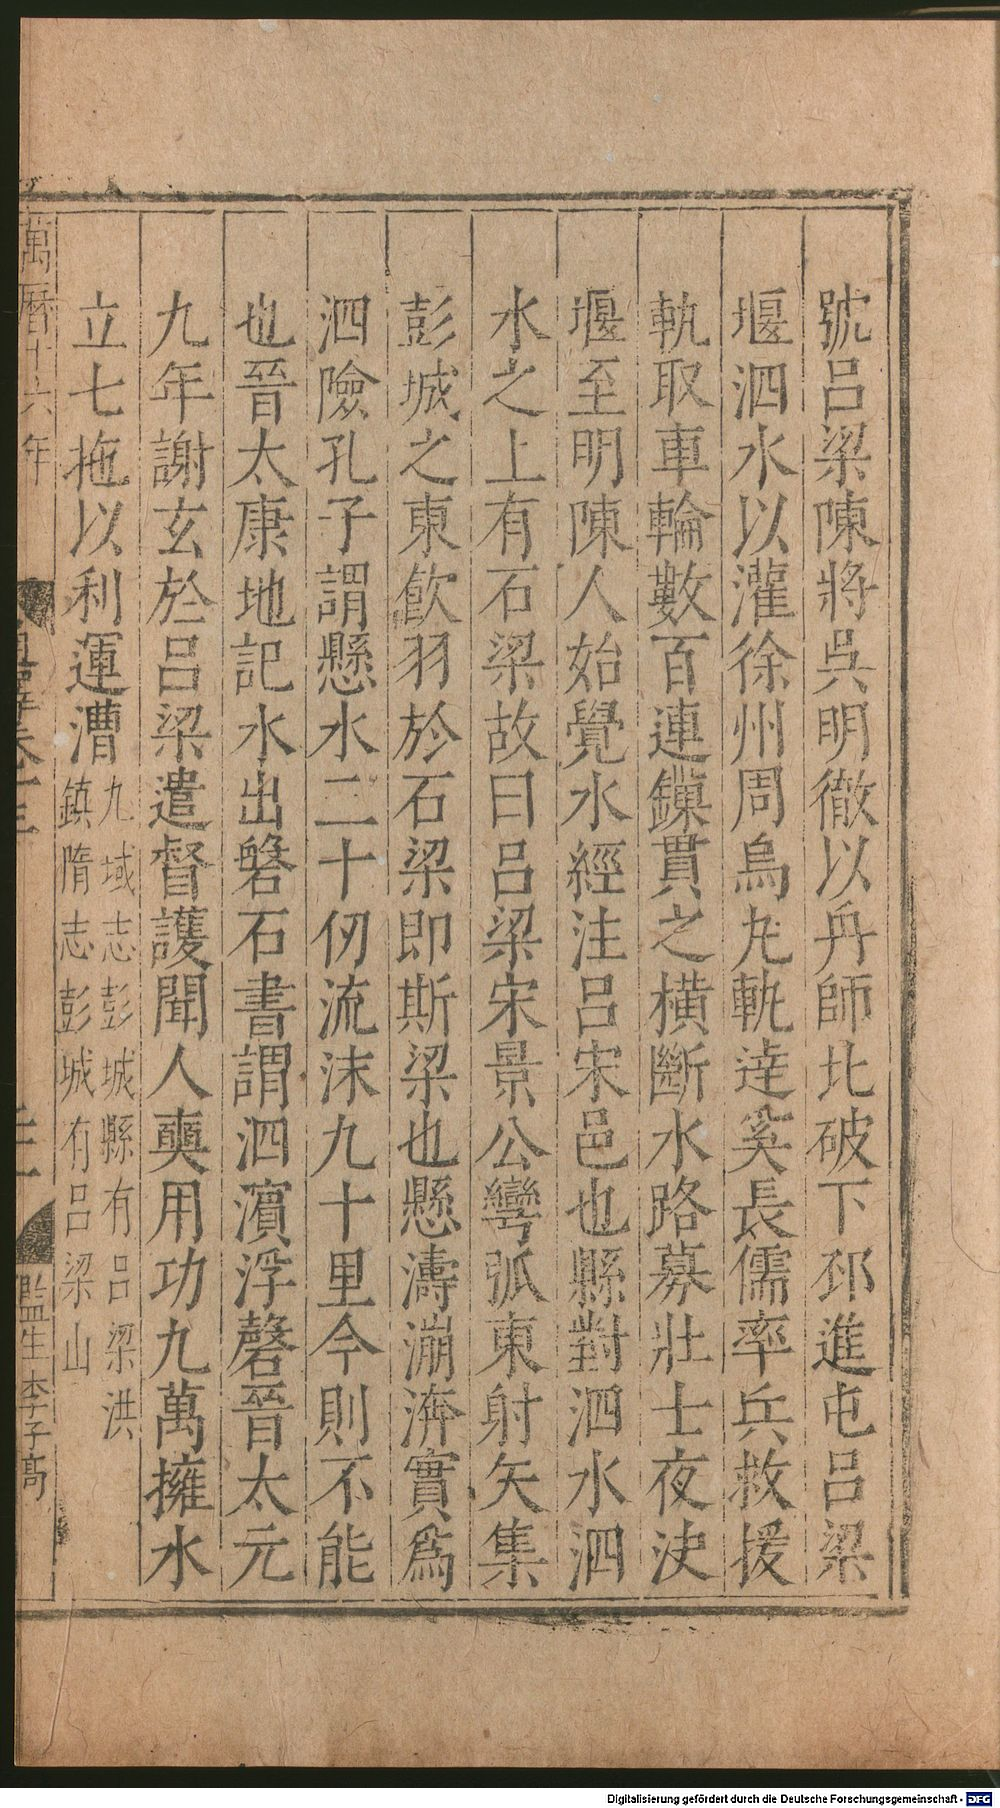 號呂梁陳將吳明徹以舟師北破下邳進屯呂梁
堰泗水以灌徐州周烏丸軌達奚長儒率兵救援
軌取車輪數百連鏁貫之橫斷水路募壯士夜決
堰至明陳人始覺水經注呂宋邑也縣對泗水泗
水之上有石梁故曰呂梁宋景公彎弧東射矢集
彭城之東飲羽於石梁即斯梁也懸濤漰湃實爲
泗險孔子謂懸水二十仞流沫九十里今則不能
也晉太康地記水出磐石書謂泗濱浮磬晉太元
九年謝玄於呂梁遣督護聞人奭用功九萬擁水
立七拖以利運漕
九域志彭城縣有呂梁洪
鎮隋志彭城有呂梁山
萬曆十六年
監生李子高
Digitalisierung gefördert durch die Deutsche Forschungsgemeinschaft - DFG